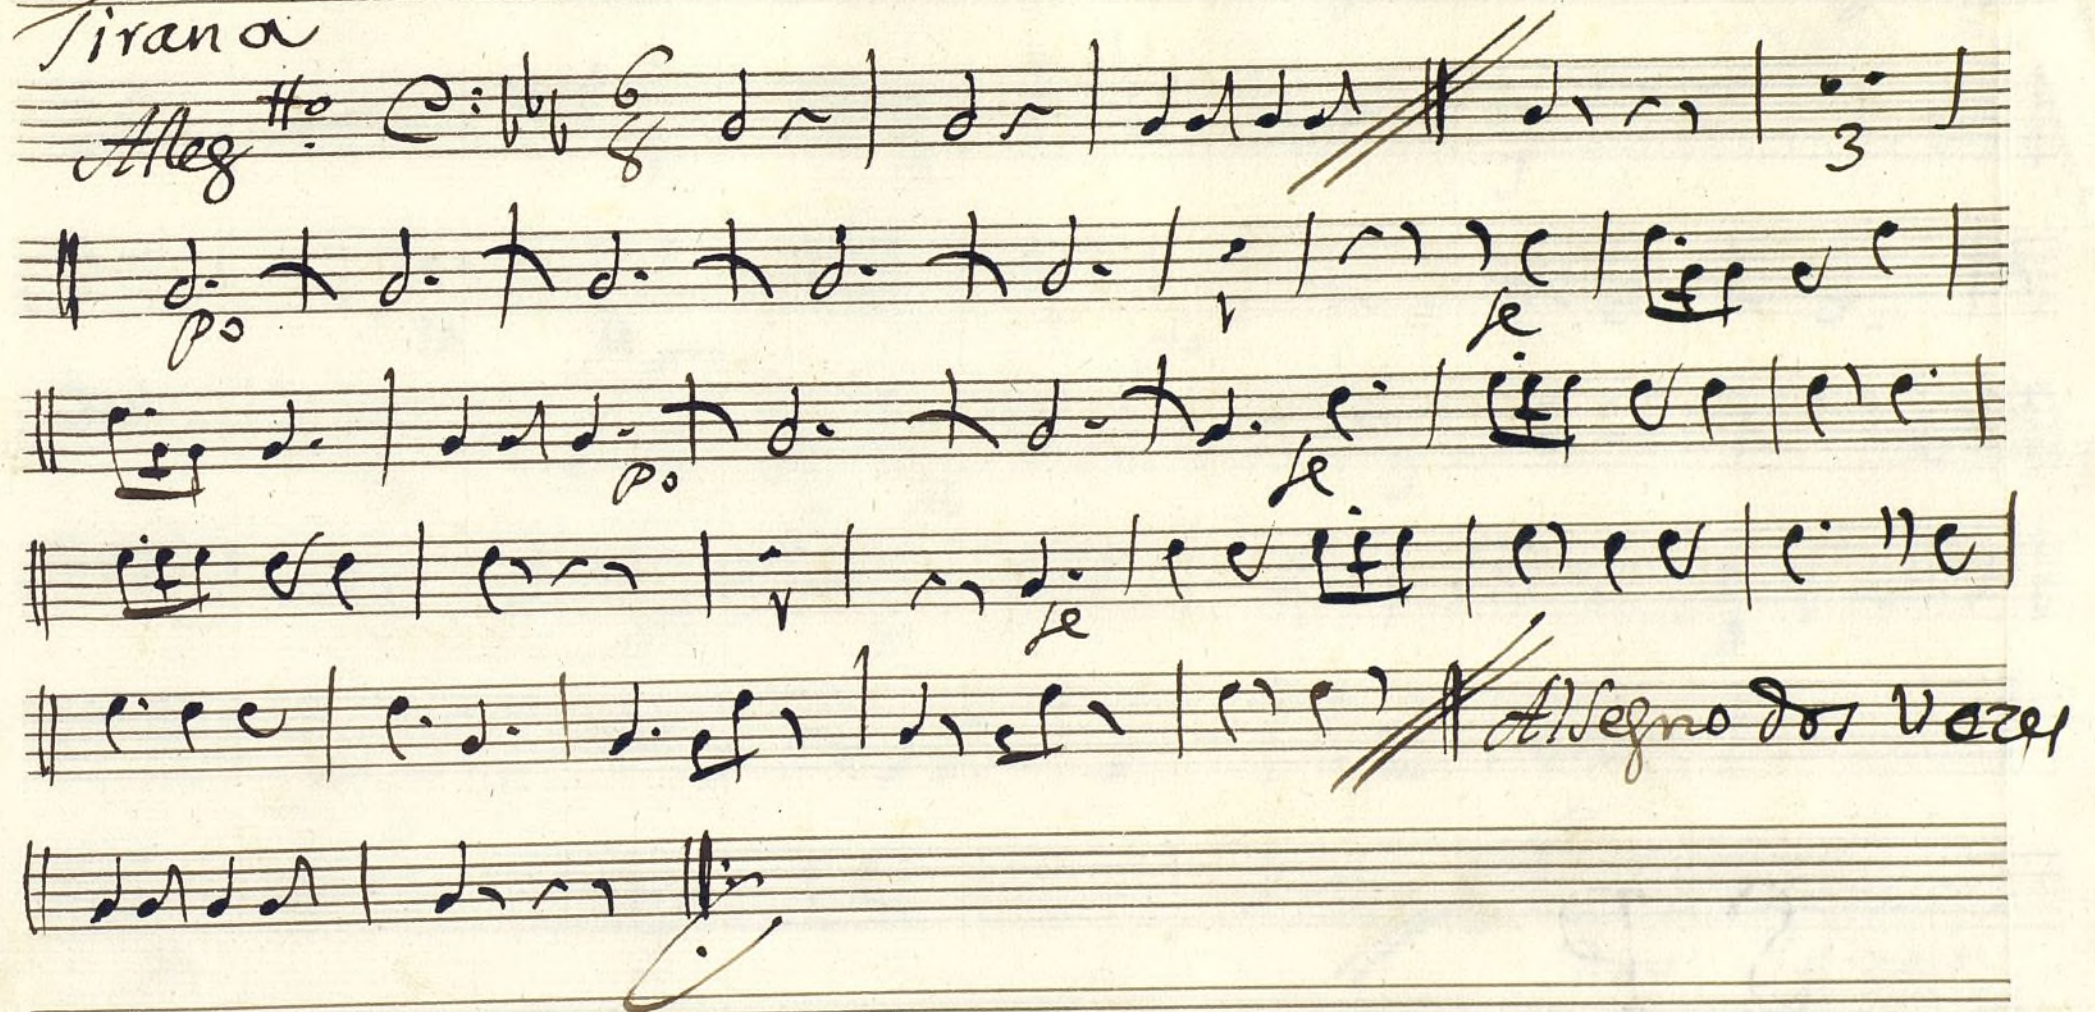 Tirana
Alleg.tto 6 8 3
po 1 fe
po fe
1 fe
Al Segno dos Vezes